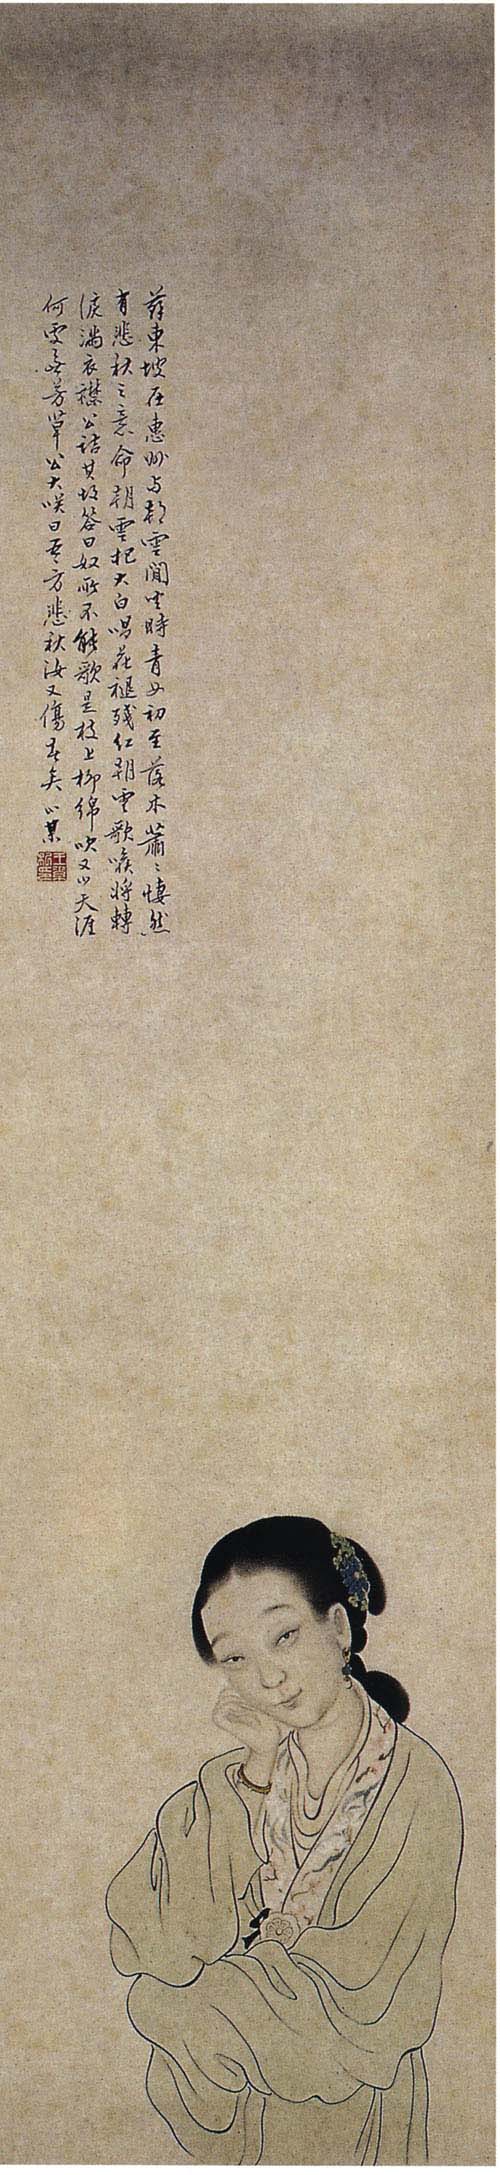 蘇東坡在惠州与朝雲閒坐時青女初至落木蕭〻悽然
有悲秋之意命朝雲把大白唱花褪残红朝雲歌喉将轉
淚滿衣襟公詰其故答曰奴所不能歌是枝上柳绵吹又少天涯
何处無芳草公大咲曰吾方悲秋汝又傷春矣小某